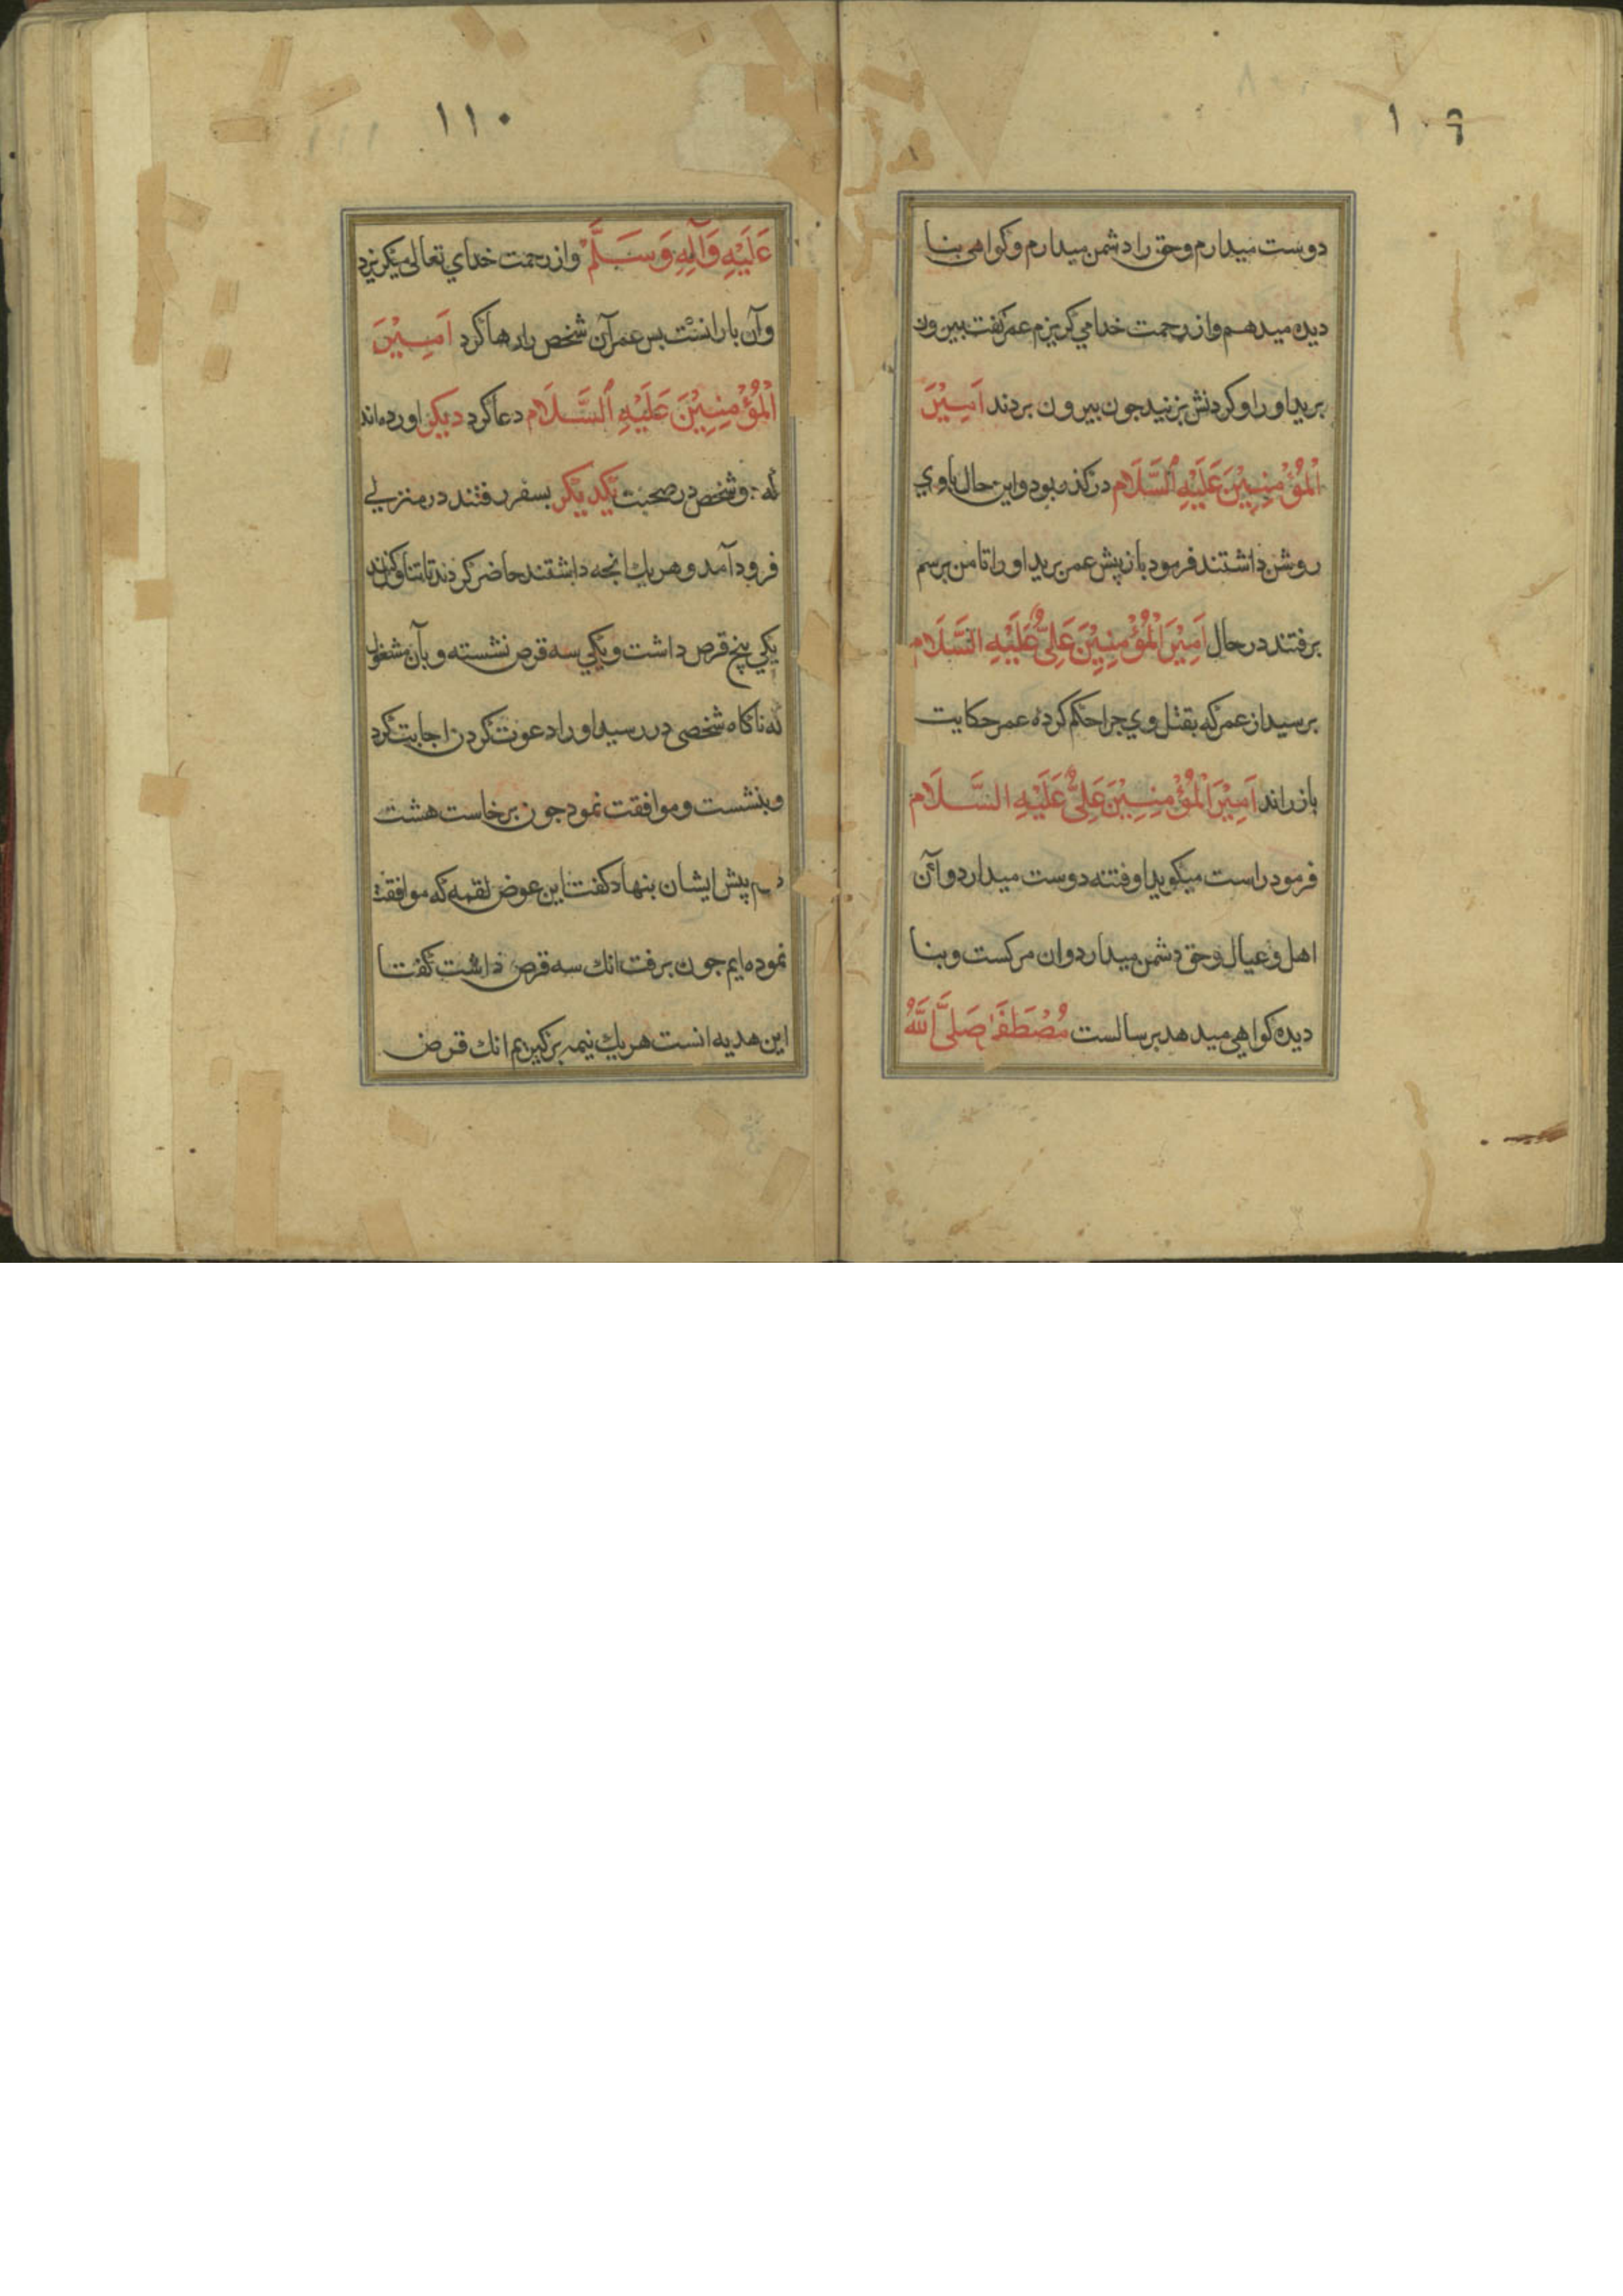 ۱۰۹
دوست میدارم وحق را دشمن میدارم وکواهی بنا
دیده میدهم واز رحمت خدا می کریزم عمر کفت بیرون
برید او را وکردنش بزنید جون بیرون بردند اَمِیْرَ
اَلْمُؤْمِنِیْنَ عَلَیْهِ اَلسَّلَام در کذر بود واین حال باوي
روشن داشتند فرمود باز پیش عمر برید او را تا من برسم
برفتند در حال اَمِیْرَ اَلْمُؤْمِنِیْنَ عَلِیٌّ عَلَیْهِ السَّلَام
برسید از عمر که بقتل وي جرا حکم کرده عمر حکایت
باز راند اَمِیْرَ اَلْمُؤْمِنِیْنَ عَلِیٌّ عَلَیْهِ السَّلَام
فرمود راست میکوید او فتنه دوست میدارد وآن
اهل وعیال وحق دشمن میدارد وان مرکست وبنا
دیده کواهی میدهد برسالست مُصْطَفَی صَلَّی اَللّٰهُ
۱۱۰
عَلَیْهِ وَآلِهِ وَسَلَّمْ واز رحمت خداي تعالی میکریزد
وآن بارانست بس عمر آن شخص را رها کرد اَمِیْرَ
اَلْمُؤْمِنِیْنَ عَلَیْهِ اَلسَّلَام دعا کرد دیکر اورده اند
که دو شخص در صحبت یکدیکر بسفر رفتند در منزلي
فرود آمد وهر یك انجه داشتند حاضر کردند تا تناول کنند
یکي پنج قرص داشت ویکي سه قرص نشسته وبآن مشغول
که ناکاه شخصی در رسید او را دعوت کردن اجابت کرد
وبنشست وموافقت نمود جون برخاست هشت
درم پیش ایشان بنهاد کفت این عوض لقمه که موافقت
نموده ایم جون برفت انك سه قرص داشت کفت تا
این هدیه انست هر یك نیمه برکیریم انك قرض